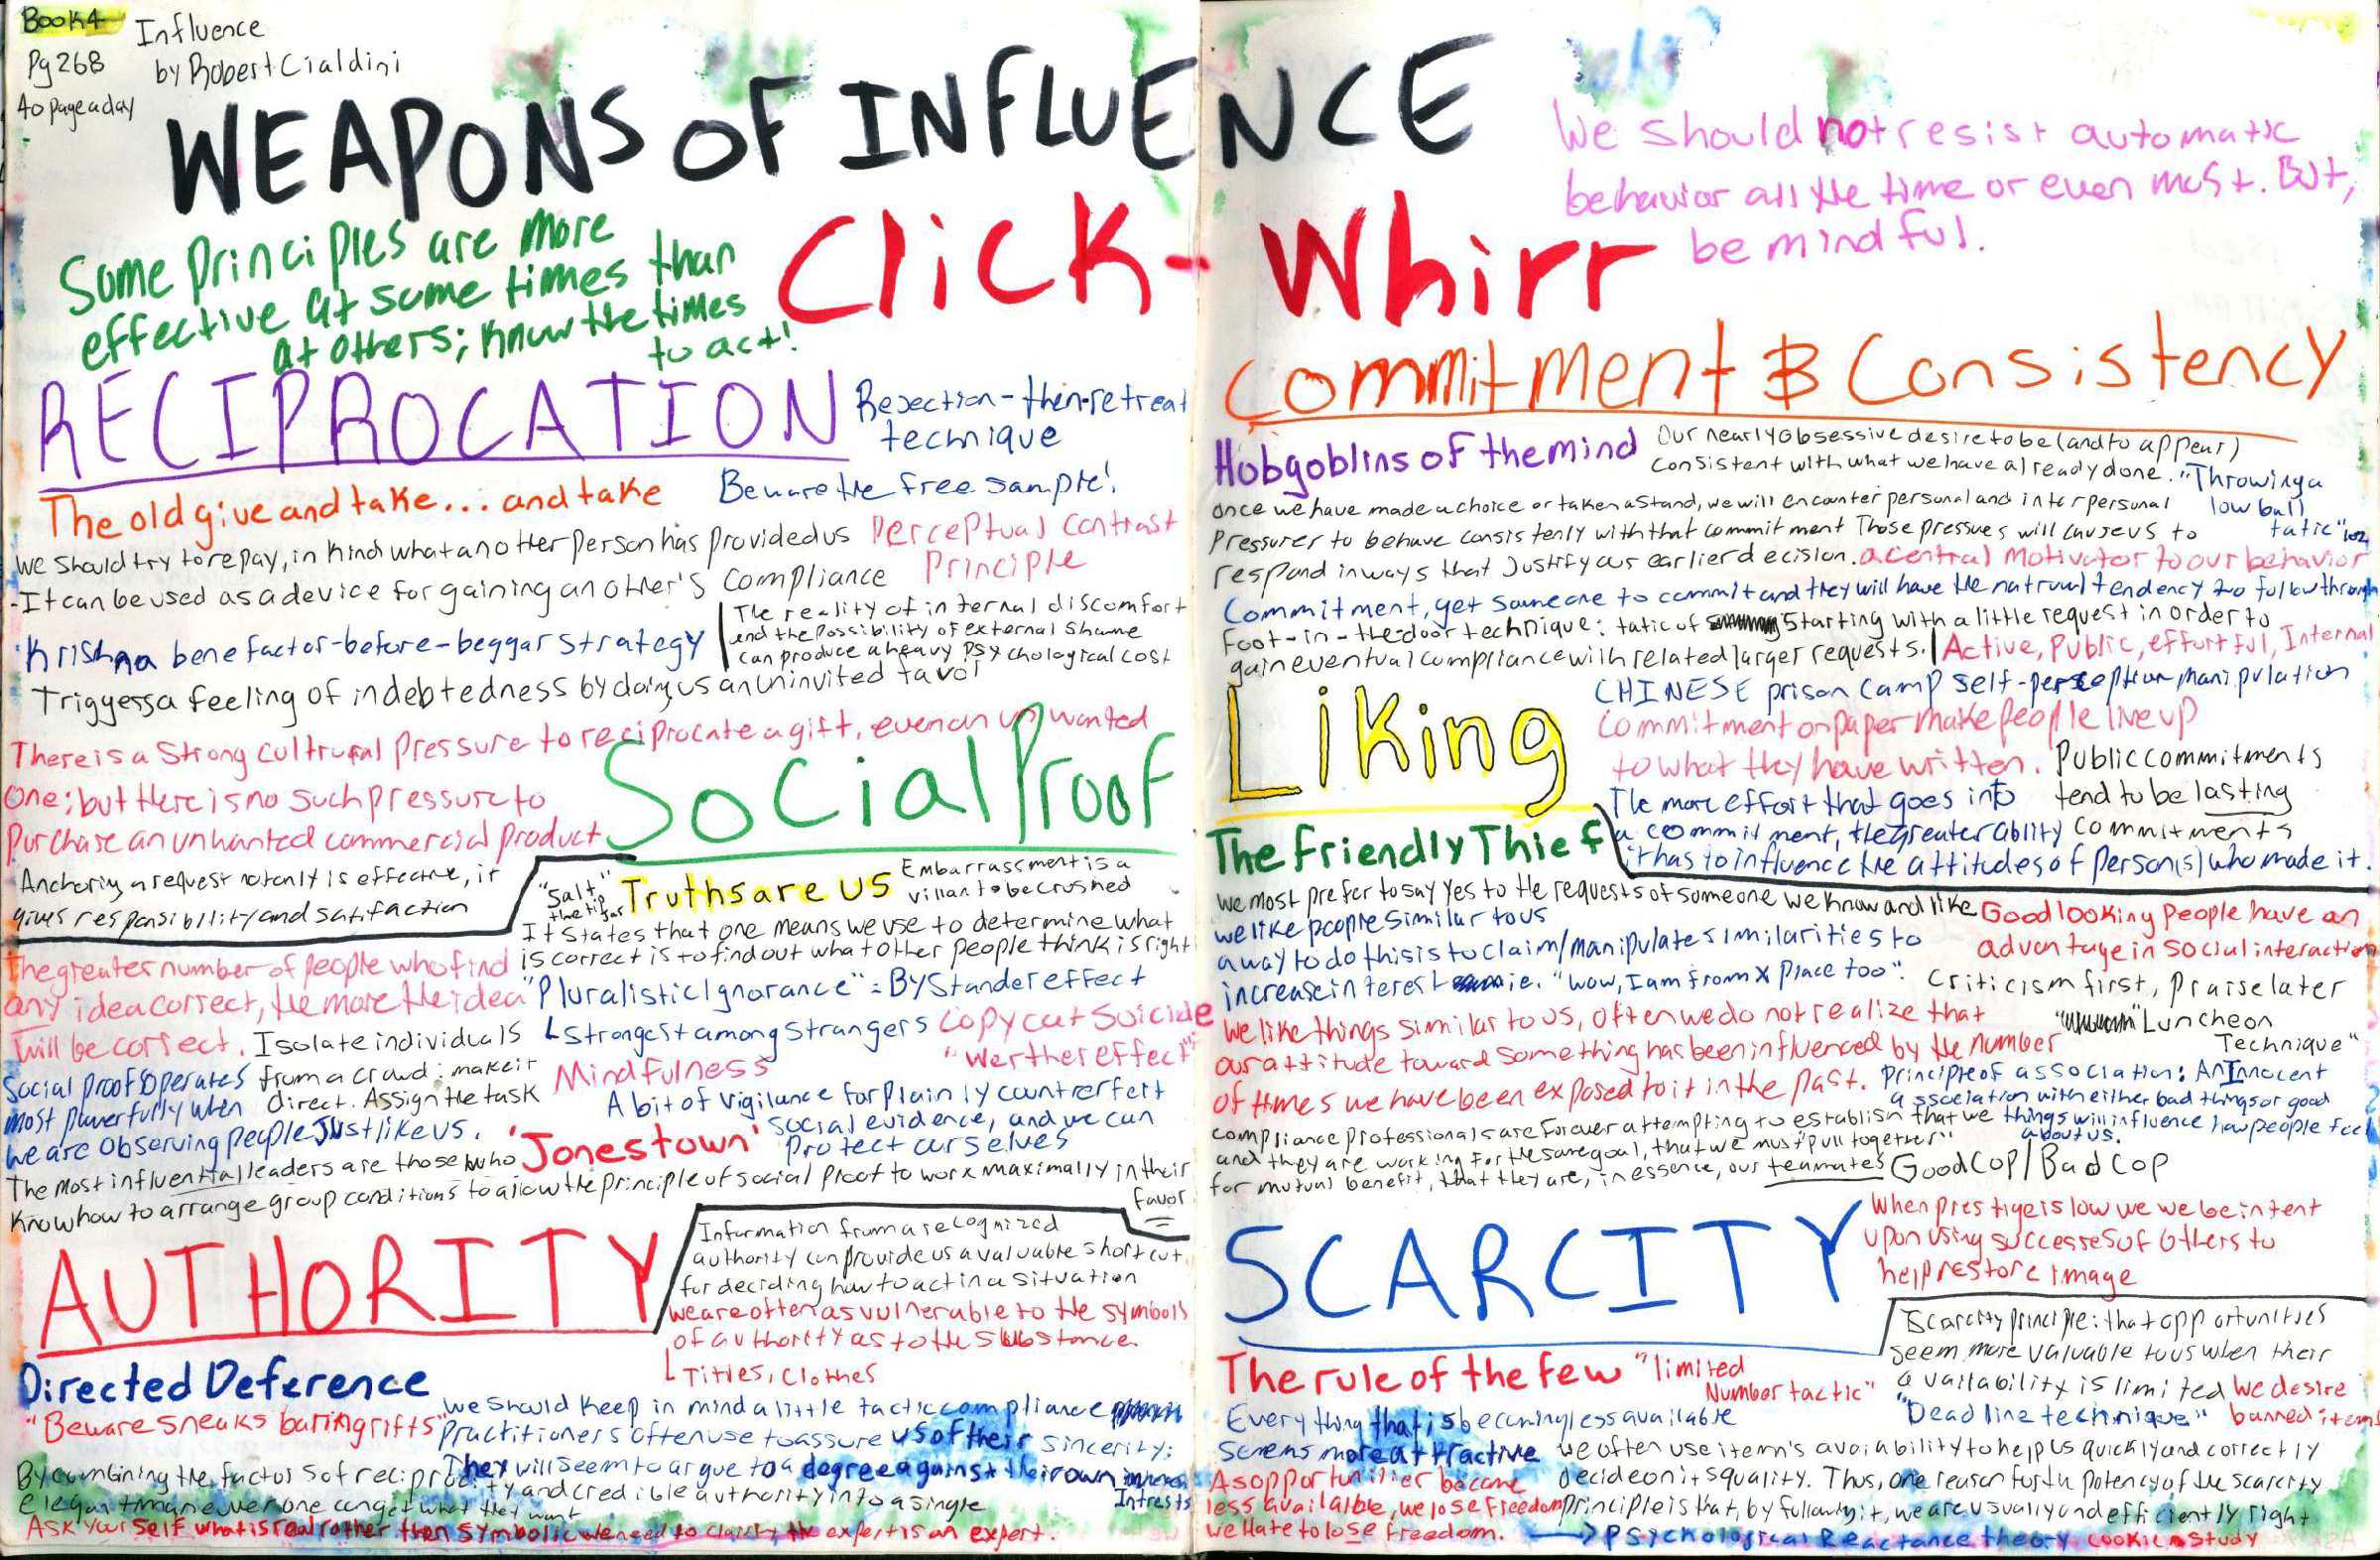 Book 4
Pg 268
40 page a day
Influence
by Robert Cialdini
WEAPONS OF INFLUENCE
Click-Whirr
Some Principles are more
effective at some times than
at others; know the times
to act!
We should not resist automatic
behavior all the time or even most. But,
be mindful.
RECIPROCATION
Rejection-then-retreat
technique
The old give and take... and take
Beware the free sample!
We should try to repay, in kind what another person has provided us
Perceptual Contrast
Principle
-It can be used as a device for gaining another's compliance
'Krishna benefactor-before-beggar strategy
The reality of internal discomfort
and the possibility of external shame
can produce a heavy psychological cost
Triggers a feeling of indebtedness by doing us an uninvited favor
There is a strong cultrural pressure to reciprocate a gift, even an unwanted
one; but there is no such pressure to
purchase an unwanted commercial product
Anchoring a request not only is effective, it
gives responsibility and satifaction
Social Proof
"Salt"
the tip jar
Truths are us
Embarrassment is a
villan to be crushed
It states that one means we use to determine what
is correct is to find out what other people think is right
The greater number of people who find
any idea correct, the more the idea
will be correct.
"Pluralistic Ignorance" = ByStander effect
Strongest among strangers
Copycat Suicide
"Werther effect"
Isolate individuals
from a crowd: make it
direct. Assign the task
Mindfulness
A bit of vigilance for plainly countrerfeit
social evidence, and we can
protect ourselves
Social proof operates
most powerfully when
we are observing people just like us.
'Jonestown'
The most influential leaders are those who
know how to arrange group conditions to allow the principle of social proof to work maximally in their
favor
AUTHORITY
Information from a recognized
authority can provide us a valuable shortcut
for deciding how to act in a situation
we are often as vulnerable to the symbols
of authority as to the substance.
Titles, Clothes
Directed Deference
"Beware sneaks baring rifts"
We should keep in mind a little tactic compliance
practitioners often use to assure us of their sincerity:
They will seem to argue to a degree against their own
Intrests
By combining the factors of reciprocity and credible authority into a single
elegant maneuver one can get what they want
Ask yourself what is real rather then symbolic we need to clarify the expert is an expert.
Commitment & Consistency
Hobgoblins of the mind
Our nearly obsessive desire to be (and to appear)
consistent with what we have already done.
"Throwing a
low ball
tatic" 102
once we have made a choice or taken a stand, we will encounter personal and interpersonal
Pressurer to behave consistenly with that commitment Those pressures will cause us to
respond in ways that justify our earlier decision.
a central motivator to our behavior
Commitment, get someone to commit and they will have the natrual tendency to follow through
Foot-in-the-door technique: tatic of starting with a little request in order to
gain eventual compliance with related larger requests.
Active, Public, effortful, Internal
CHINESE prison camp self-perception manipulation
Commitment on paper make people live up
to what they have written.
Public commitments
tend to be lasting
commitments
The more effort that goes into
a commitment, the greater ablity
it has to influence the attitudes of person(s) who made it.
Liking
The Friendly Thief
We most prefer to say yes to the requests of someone we know and like
we like people similar to us
a way to do this is to claim/manipulate similarities to
increase interest ie. "wow, I am from X place too".
Good looking people have an
advantage in social interaction
Criticism first, Praise later
"Luncheon
Technique"
We like things similar to us, often we do not realize that
our attitude toward something has been influenced by the number
of times we have been exposed to it in the past.
Principle of association: An Innocent
association with either bad things or good
things will influence how people feel
about us.
compliance professionals are forever attempting to establish that we
and they are working for the same goal, that we must "pull together"
for mutual benefit, that they are, in essence, our teamates
Good Cop/Bad Cop
SCARCITY
When prestige is low we we be intent
upon using successes of others to
help restore image
Scarcity principle: that opportunities
seem more valuable to us when their
availability is limited
We desire
banned items
"Deadline technique"
The rule of the few
"limited
Number tactic"
Everything that is becoming less available
seems more attractive
As opportunitier become
less available, we lose freedom
we hate to lose freedom.
We often use item's avaiability to help us quickly and correctly
decide on it squality. Thus, one reason for the potency of the scarcity
principle is that, by following it, we are usually and efficiently right
Psychological Reactance theory
cookie study